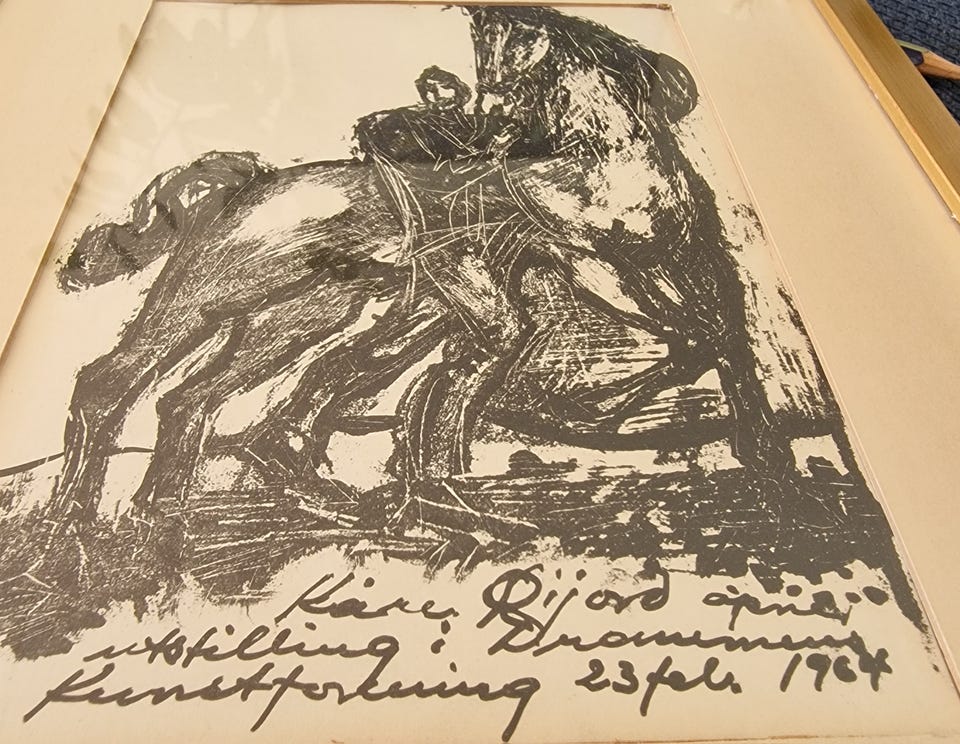 Kåre Øijord åpner
utstilling i Drammens
Kunstforening 23 feb. 1964